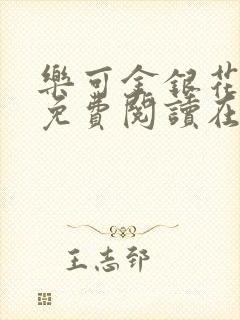 樂可金銀花
免費閱讀在
王志郅